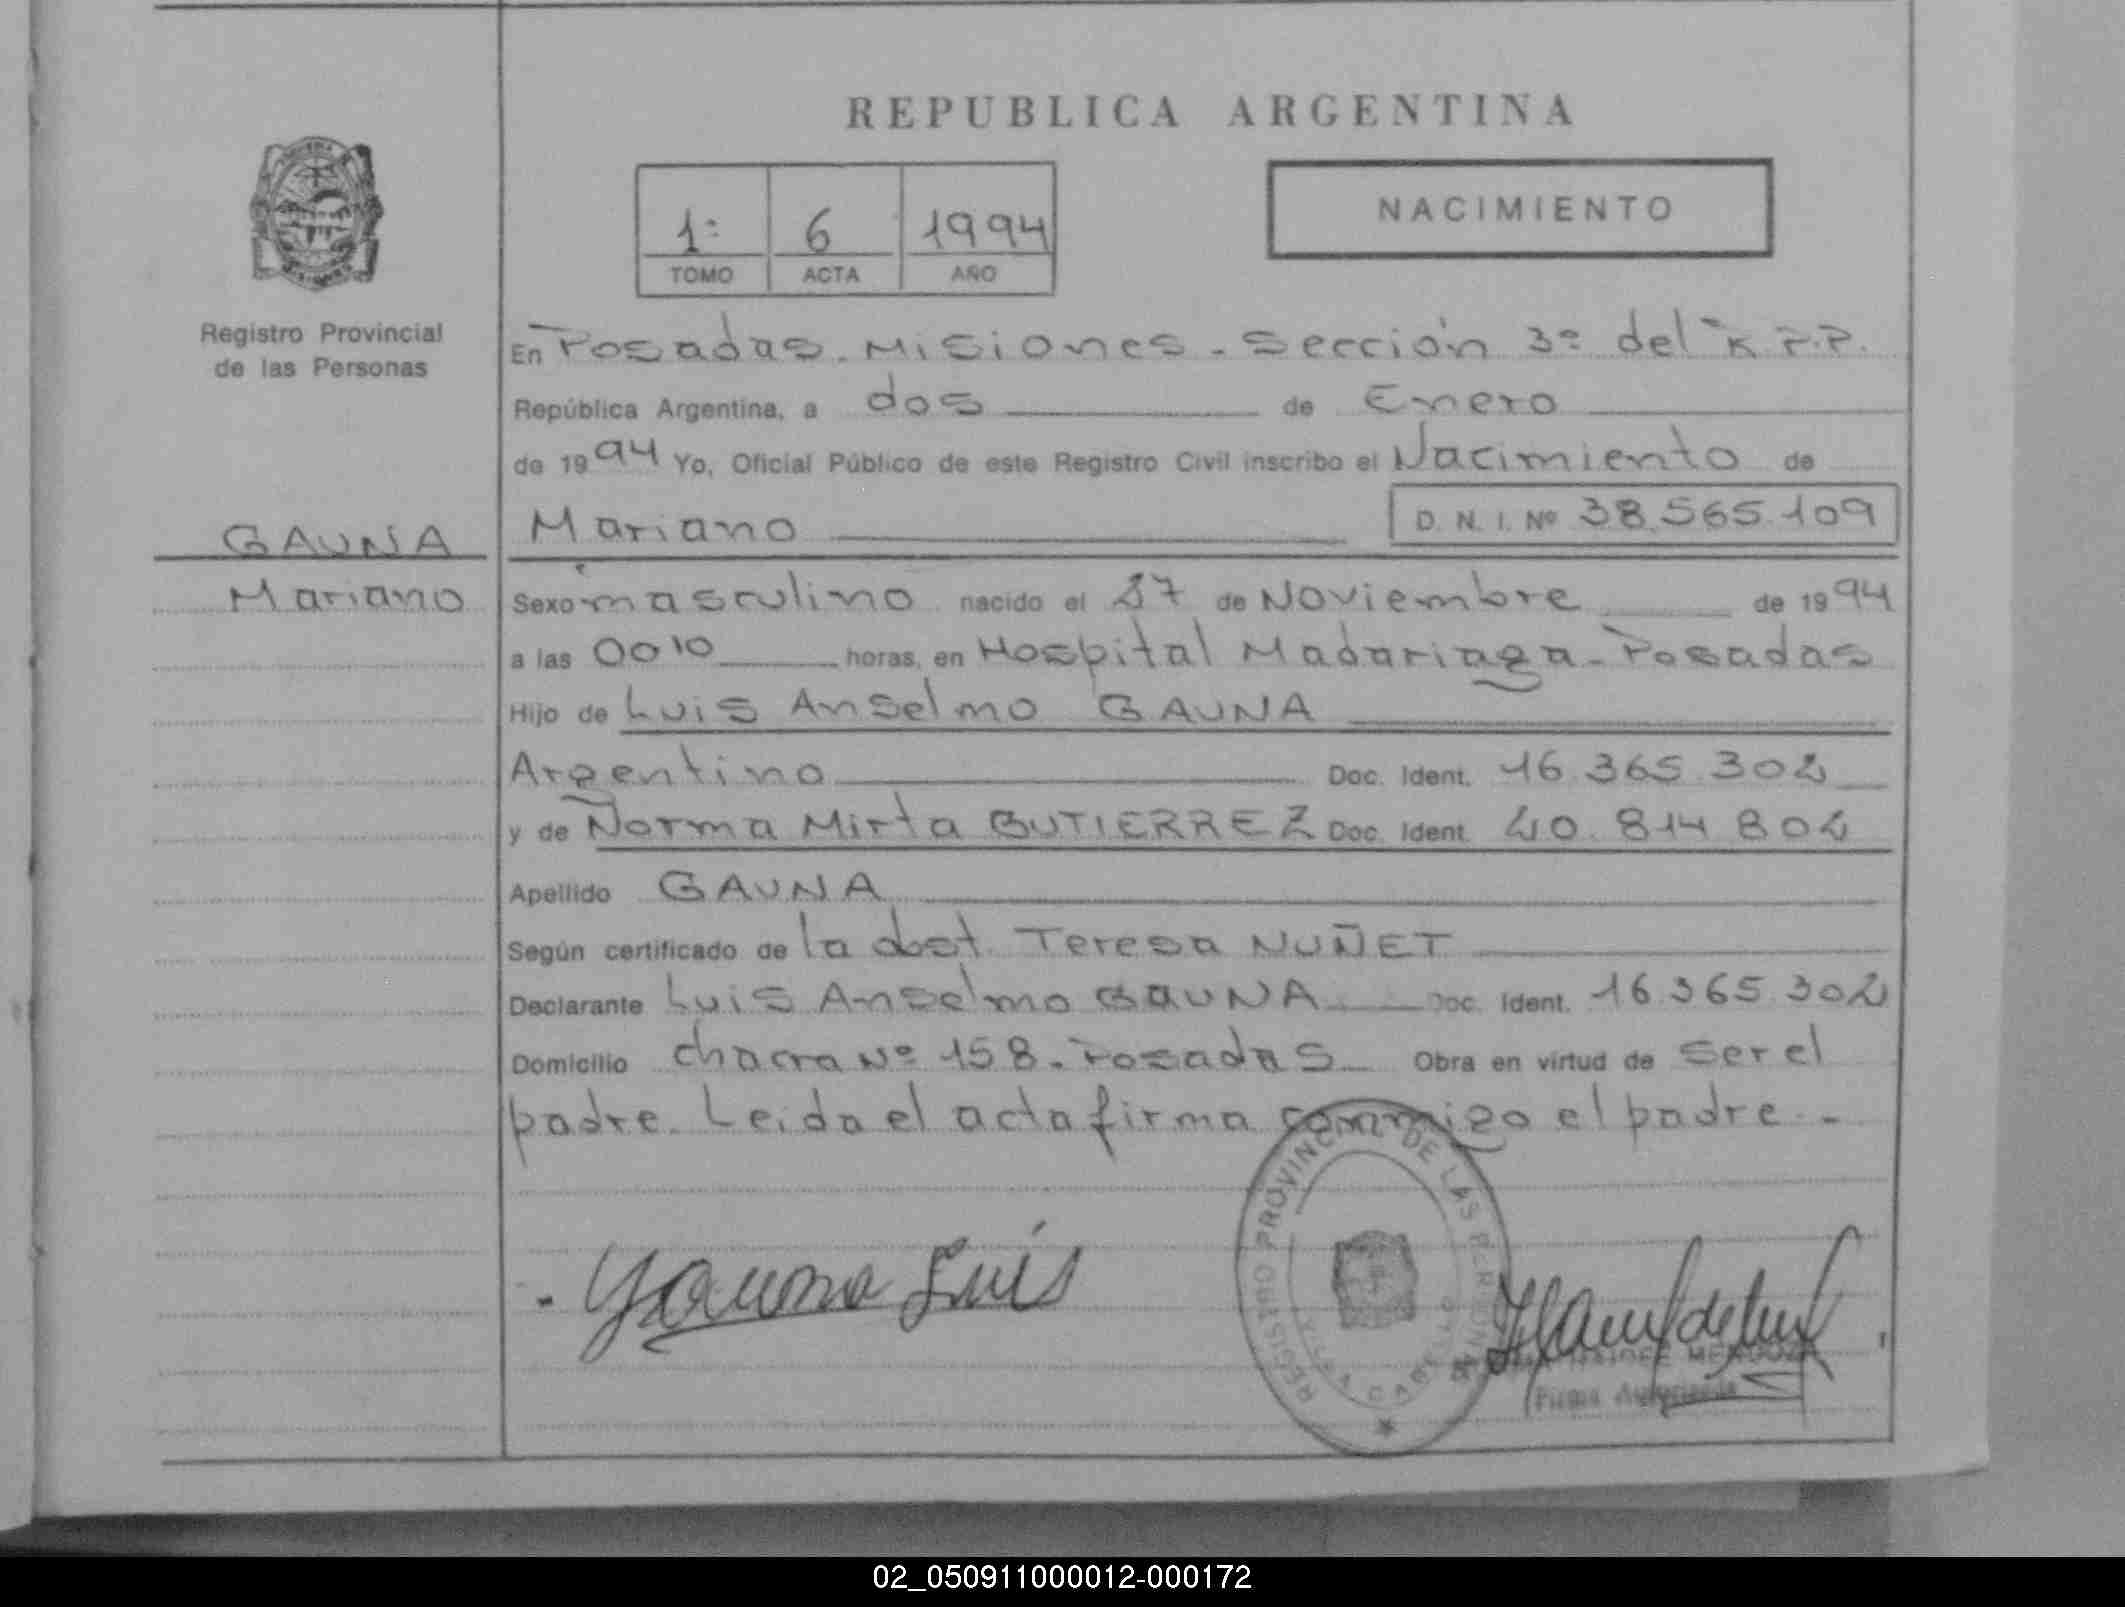 REPUBLICA ARGENTINA
1º 6 1994
TOMO ACTA AÑO
NACIMIENTO
Registro Provincial
de las Personas
En Posadas. Misiones. Sección 3º del R.P.P.
República Argentina, a dos de Enero
de 1994 Yo, Oficial Público de este Registro Civil inscribo el Nacimiento de
GAUNA
Mariano
Mariano D. N. I. Nº 38.565.109
Sexo masculino nacido el 27 de Noviembre de 1994
a las 0010 horas, en Hospital Madariaga - Posadas
Hijo de Luis Anselmo GAUNA
Argentino Doc. Ident. 16.365.302
y de Norma Mirta GUTIERREZ Doc. Ident. 20.814.802
Apellido GAUNA
Según certificado de la obst. Teresa NUÑET
Declarante Luis Anselmo GAUNA Doc. Ident. 16.365.302
Domicilio chacra Nº 158. Posadas Obra en virtud de ser el
padre. Leida el acta firma conmigo el padre.-
Gauna Luis
REGISTRO PROVINCIAL DE LAS PERSONAS
VILLA CABELLO
MENDOZA
Firma Autorizada
02_050911000012-000172